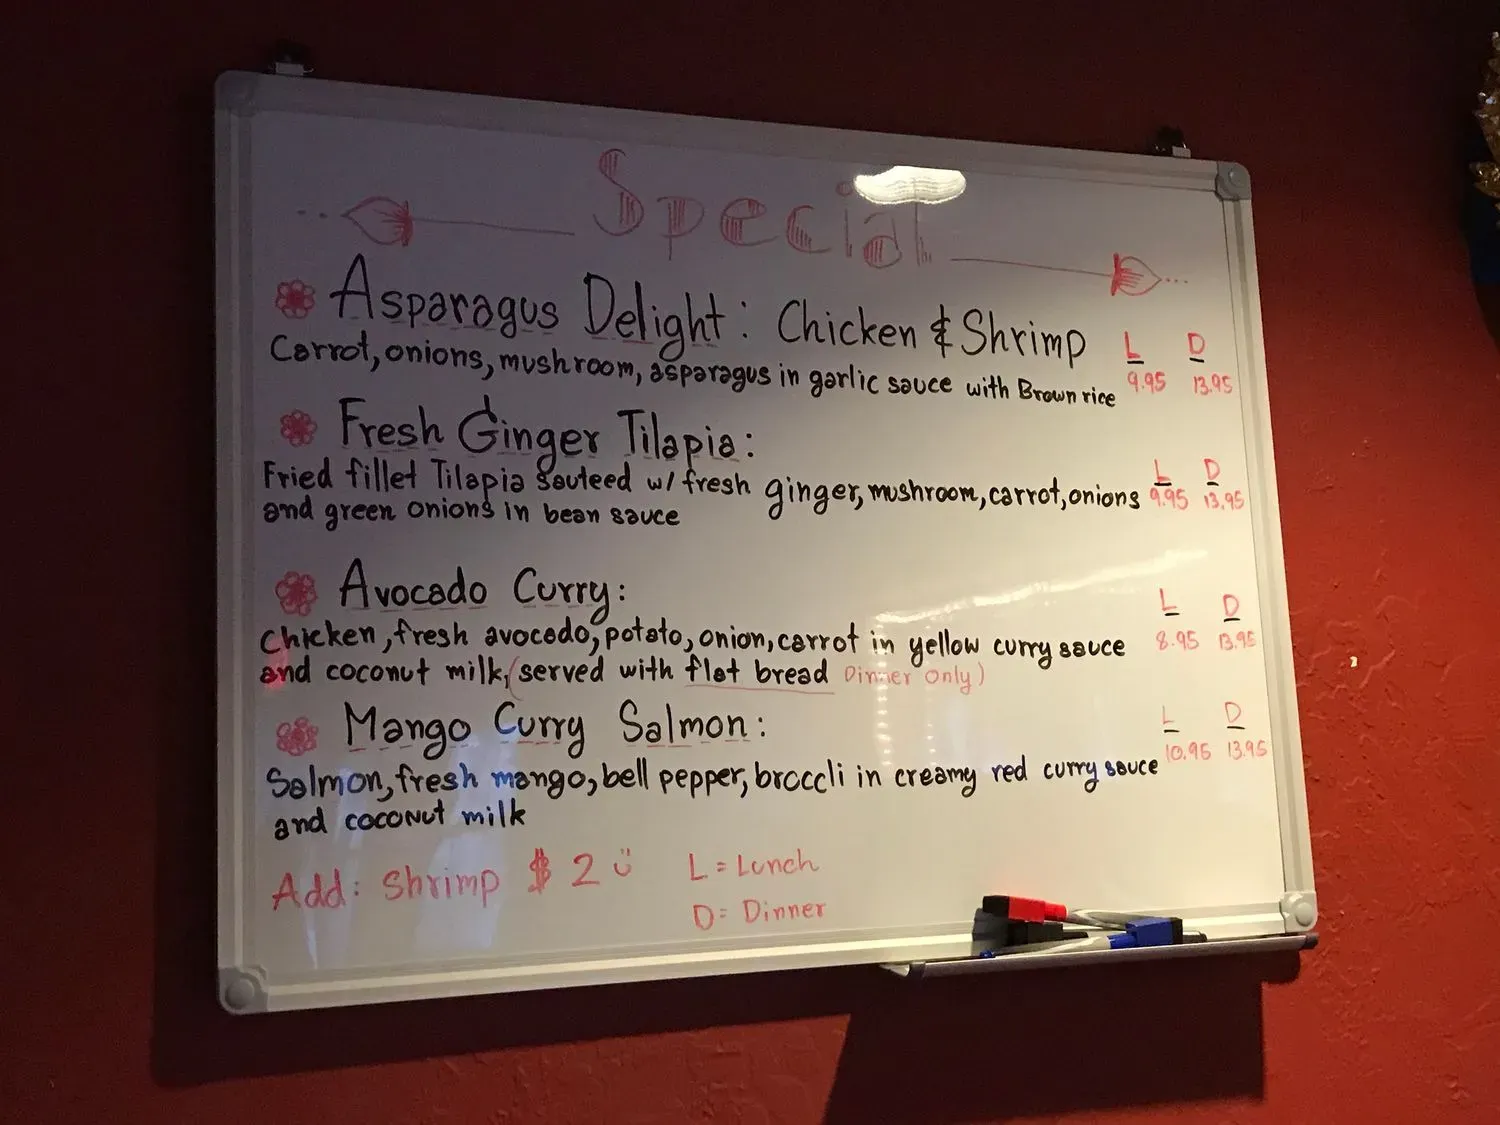 Special
Asparagus Delight: Chicken & Shrimp
L D
Carrot, onions, mushroom, asparagus in garlic sauce with Brown rice 9.95 13.95
Fresh Ginger Tilapia:
L D
Fried fillet Tilapia sauteed w/ fresh ginger, mushroom, carrot, onions 9.95 13.95
and green onions in bean sauce
Avocado Curry:
L D
Chicken, fresh avocado, potato, onion, carrot in yellow curry sauce 8.95 13.95
and coconut milk, (served with flat bread Dinner Only)
Mango Curry Salmon:
L D
Salmon, fresh mango, bell pepper, broccli in creamy red curry sauce 10.95 13.95
and coconut milk
Add: Shrimp $2 L = Lunch
D = Dinner